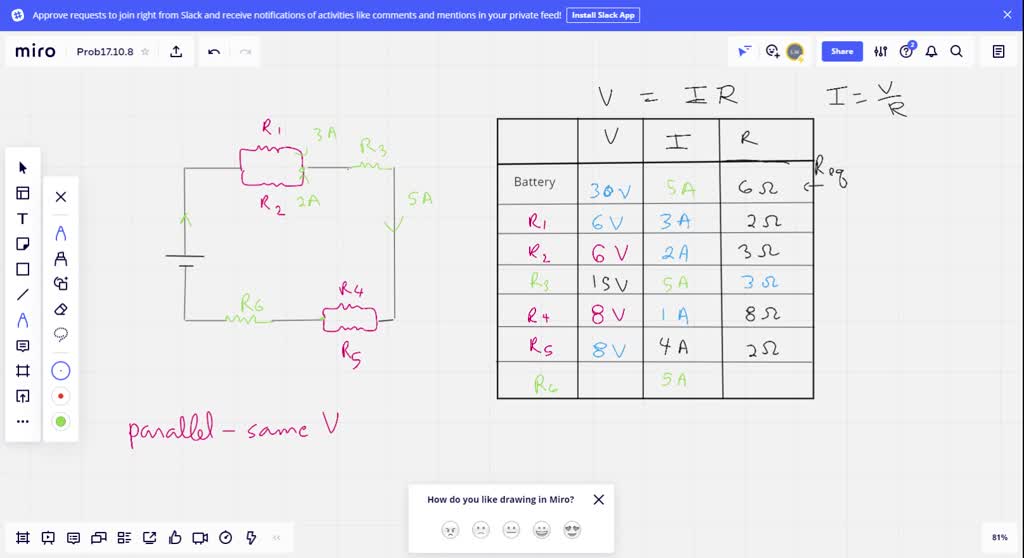 Approve requests to join right from Slack and receive notifications of activities like comments and mentions in your private feed! Install Slack App
miro Prob17.10.8 Share 2
V = IR
I = V/R
V I R
Battery 30V 5A 6Ω ← Req
R1 6V 3A 2Ω
R2 6V 2A 3Ω
R3 15V 5A 3Ω
R4 8V 1A 8Ω
R5 8V 4A 2Ω
R6 5A
R1 3A R3
R2 2A 5A
R6 R4
R5
parallel - same V
How do you like drawing in Miro?
81%